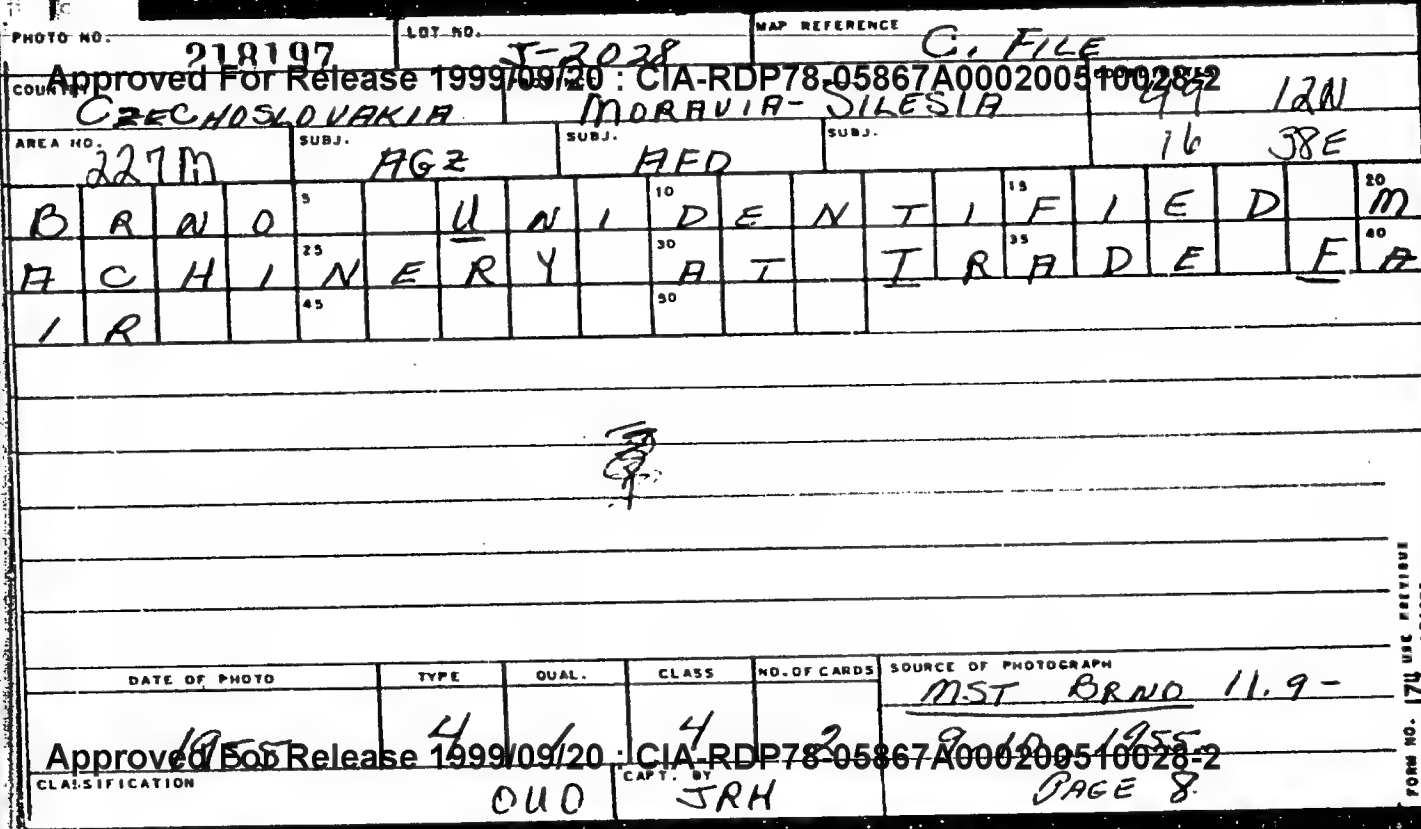 PHOTO NO. 218197 LOT NO. J-2028 MAP REFERENCE C. FILE
Approved For Release 1999/09/20 : CIA-RDP78-05867A000200510028-2
CZECHOSLOVAKIA MORAVIA-SILESIA 49 12N
AREA NO. 227M SUBJ. AGZ SUBJ. AFD SUBJ. 16 38E
BRNO UNIDENTIFIED M
ACHINERY AT TRADE FA
IR
DATE OF PHOTO TYPE QUAL. CLASS NO. OF CARDS SOURCE OF PHOTOGRAPH
MST BRNO 11.9-
1955 4 1 4 2 9-10-1955
Approved For Release 1999/09/20 : CIA-RDP78-05867A000200510028-2
CLASSIFICATION OUO CAPT. BY JRH PAGE 8
FORM NO. 174 USE PREVIOUS